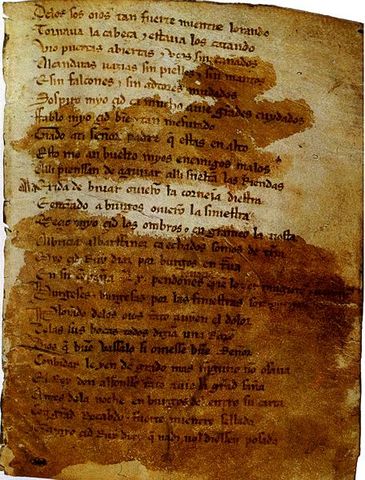 Delos sos oios tan fuerte mientre lorando
Tornaua la cabeça ⁊ estaua los catando
Vio puertas abiertas ⁊ vços sin cañados
Alcandaras uazias sin pielles ⁊ sin mantos
E sin falcones ⁊ sin adtores mudados
Sospiro myo çid ca mucho auie grãdes cuydados
Fablo myo çid bien ⁊ tan mesurado
Grado ati señor padre q̃ estas en alto
Esto me an buelto myos enemigos malos
Alli pienssan de aguijar alli sueltã las Riendas
Ala Exida de biuar ouierõ la corneia diestra
E entrãdo a burgos ouierõ la siniestra
Meçio myo çid los ombros ⁊ en grameo la tiesta
Albriçia albarffanez ca echados somos de tierra
Myo çid Ruy diaz por burgos en traua
En su cõpaña Lx pendones
Burgeses ⁊ burgesas por las finiestras son
Plorando delos oios tãto auyen el dolor
Delas sus bocas todos dizian una Razõ
Dios q̃ buẽ vassalo si ouiesse buẽ Señor
Conbidar le yen de grado mas ninguno no osaua
El Rey don alfonsso tãto auie la grãd saña
Antes dela noche en burgos del entro su carta
Con grãd Recabdo ⁊ fuerte mientre sellada
çid Ruy diaz q̃ nadi nol diessen posada